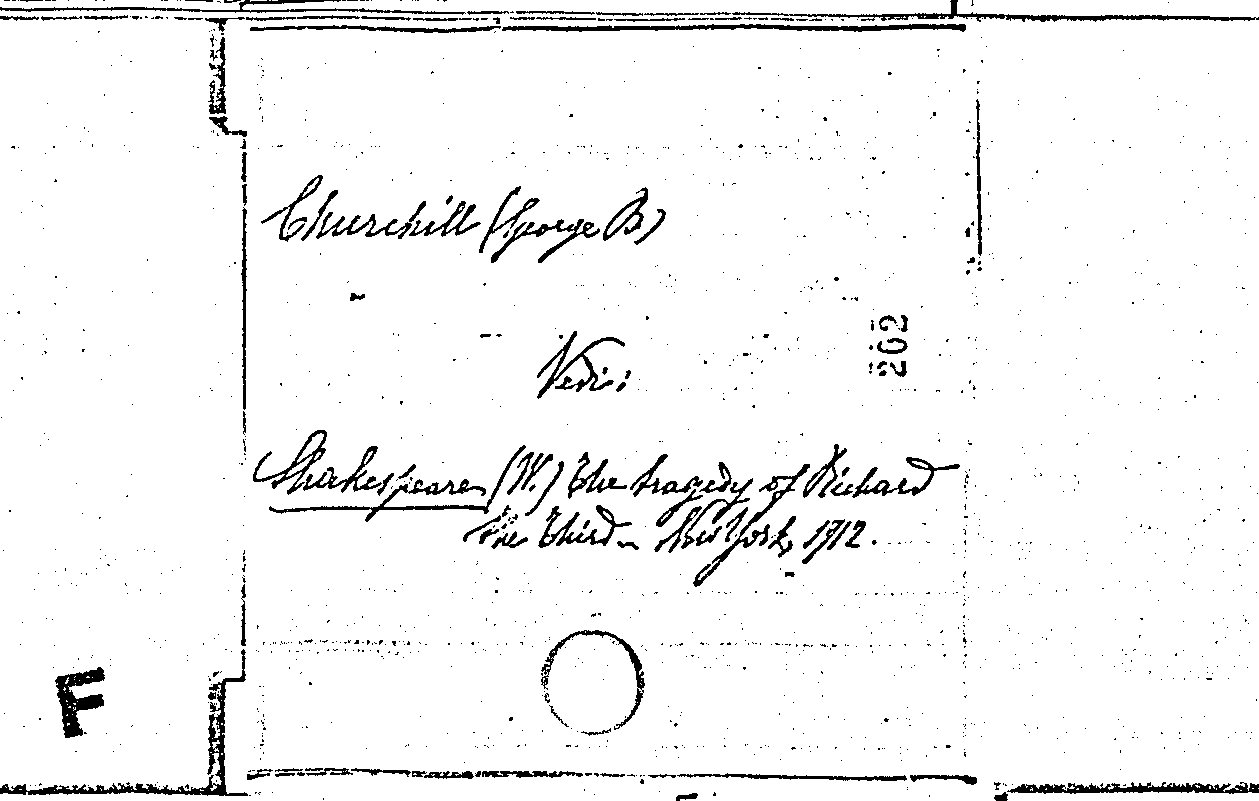 Churchill (George B)
Vedi:
262
Shakespeare (W.) The tragedy of Richard
the Third - New York, 1912.
F